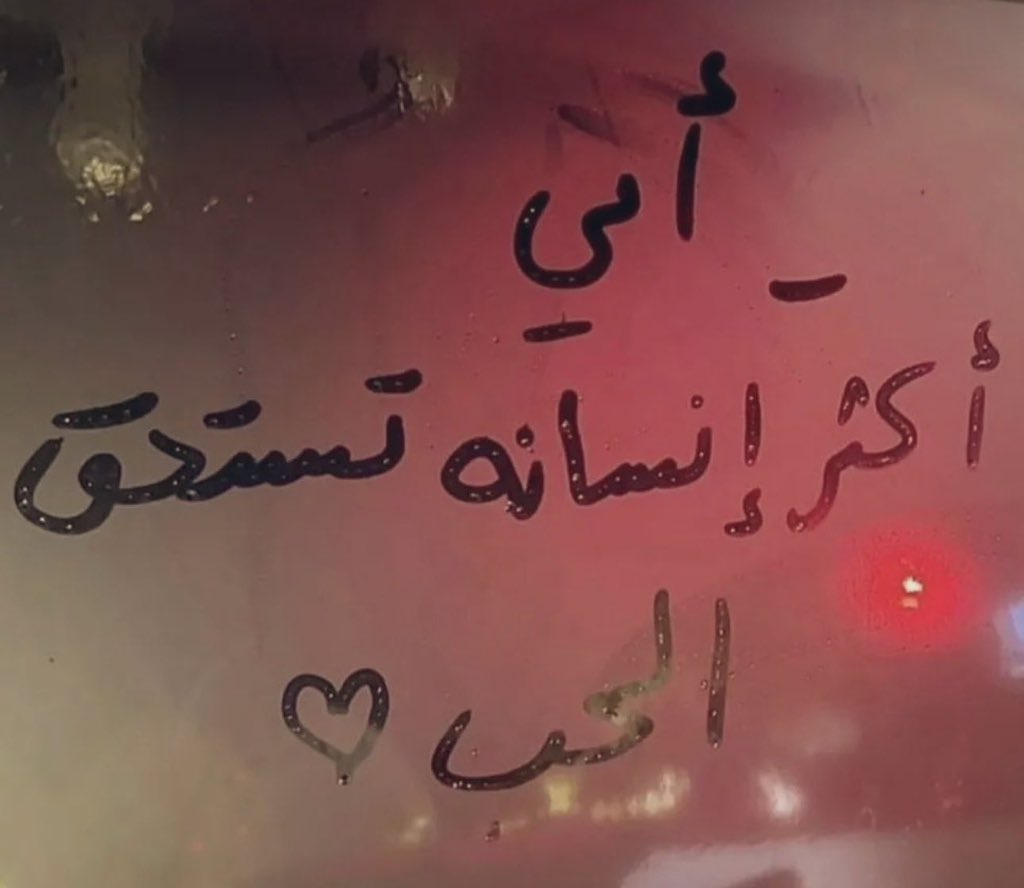 أمي
أكثر إنسانه تستحق
الحب ♡